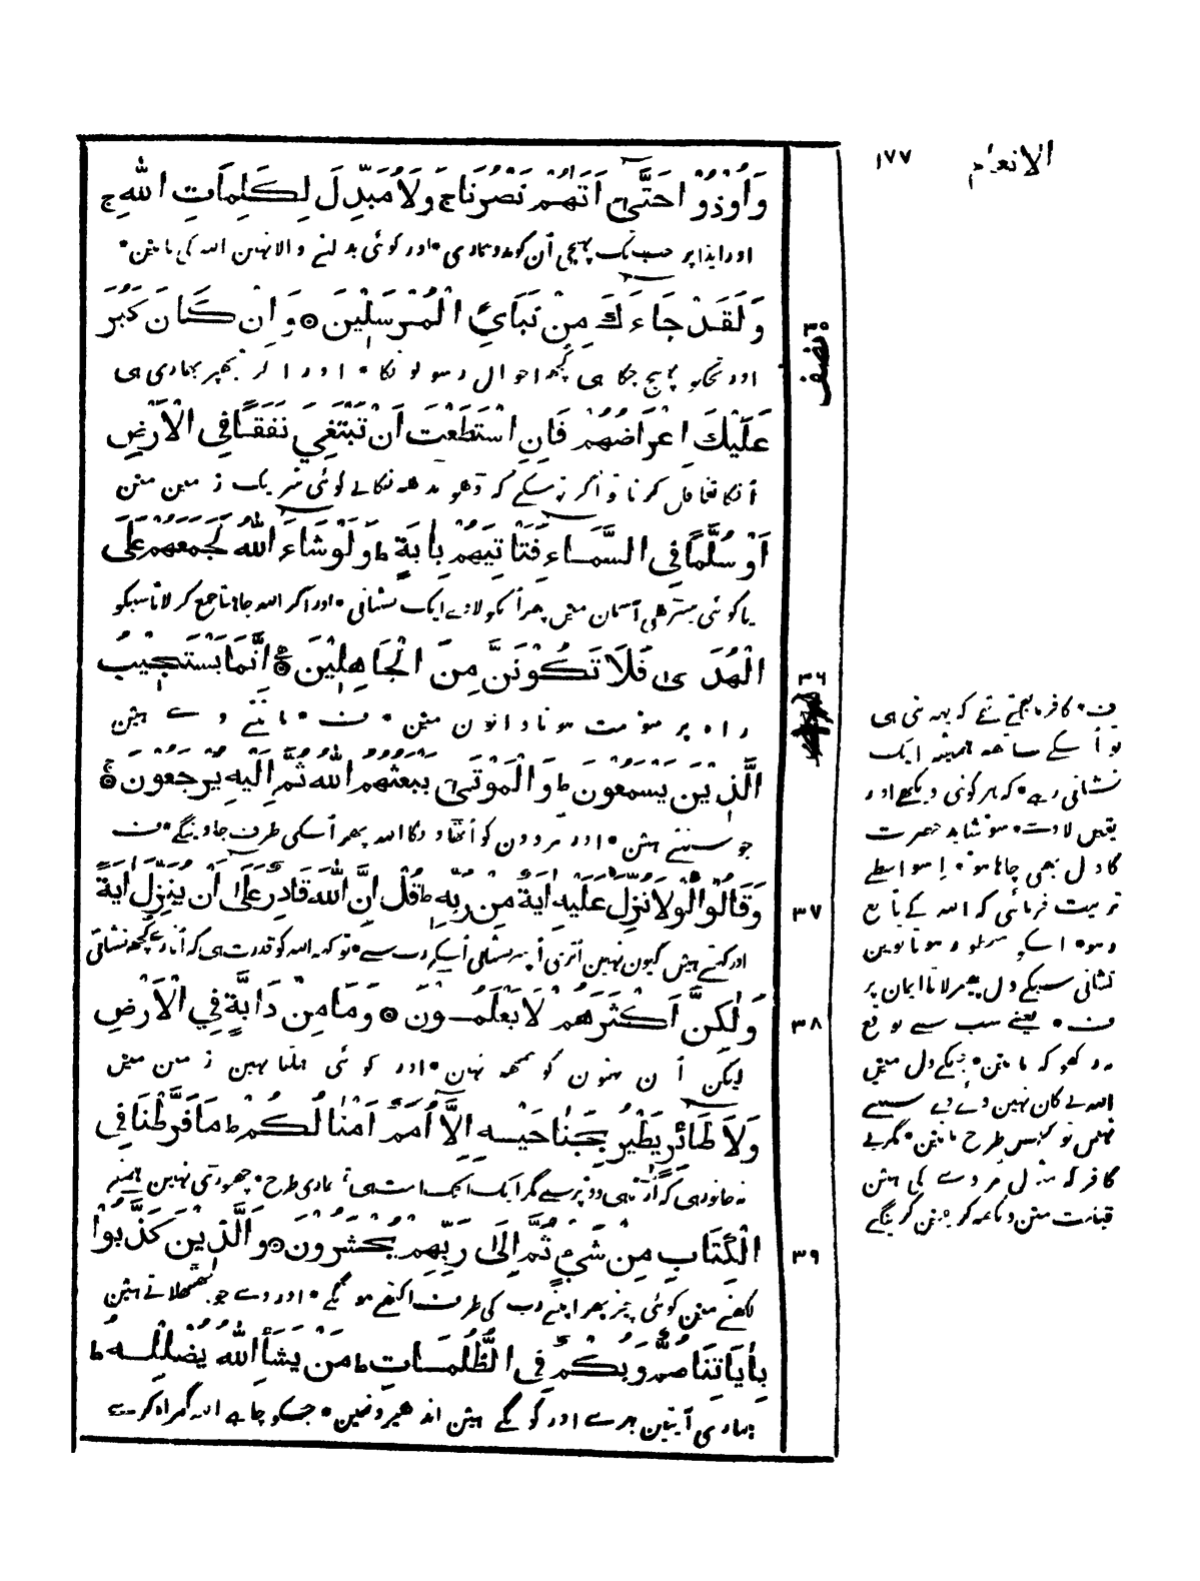 الانعام ١٧٧
وَاُوْذُوْا حَتّٰى اَتٰهُمْ نَصْرُنَا ج وَلَا مُبَدِّلَ لِكَلِمَاتِ اللهِ ج
اور ایذا پر جب تک پہنچی اُن کو مدد ہماری • اور کوئی بدلنے والا نہین اللہ کی باتین •
وَلَقَدْ جَاءَكَ مِنْ نَبَاِئِ الْمُرْسَلِيْنَ ۞ وَاِنْ كَانَ كَبُرَ
نصف
اور تجکو پہنچ چکا ہی کچھ احوال رسولونکا • اور اگر تجھپر بھاری ہی
عَلَيْكَ اِعْرَاضُهُمْ فَاِنِ اسْتَطَعْتَ اَنْ تَبْتَغِيَ نَفَقًا فِي الْاَرْضِ
اُنکا تغافل کرنا تو اگر تو سکے کہ ڈھونڈھ نکالے کوئی سرنگ زمین مین
اَوْ سُلَّمًا فِي السَّمَاءِ فَتَاْتِيَهُمْ بِاٰيَةٍ ط وَلَوْ شَاءَ اللهُ لَجَمَعَهُمْ عَلَى
یا کوئی سیڑھی آسمان مین پھر اُنکو لاوے ایک نشانی • اور اگر اللہ چاہتا جمع کر لاتا سبکو
الْهُدٰى فَلَا تَكُوْنَنَّ مِنَ الْجَاهِلِيْنَ ۞ اِنَّمَا يَسْتَجِيْبُ
٣٦
راہ پر سو مت ہو نادانون مین • ف • مانتے وے ہین
الَّذِيْنَ يَسْمَعُوْنَ ط وَالْمَوْتٰى يَبْعَثُهُمُ اللهُ ثُمَّ اِلَيْهِ يُرْجَعُوْنَ ۞
جو سنتے ہین • اور مردون کو اُٹھاویگا اللہ پھر اُسکی طرف جاوینگے • ف
وَقَالُوْا لَوْلَا نُزِّلَ عَلَيْهِ اٰيَةٌ مِنْ رَبِّهٖ ط قُلْ اِنَّ اللهَ قَادِرٌ عَلٰى اَنْ يُنَزِّلَ اٰيَةً
٣٧
اور کہتے ہین کیون نہین اُتری اُسپر نشانی اُسکے رب سے • تو کہہ اللہ کو قدرت ہی کہ اُتارے کچھ نشانی
وَلٰكِنَّ اَكْثَرَهُمْ لَا يَعْلَمُوْنَ ۞ وَمَا مِنْ دَابَّةٍ فِي الْاَرْضِ
٣٨
لیکن اُن بہتون کو سمجھ نہین • اور کوئی چلتا نہین زمین مین
وَلَا طَائِرٍ يَطِيْرُ بِجَنَاحَيْهِ اِلَّا اُمَمٌ اَمْثَالُكُمْ ط مَا فَرَّطْنَا فِي
نہ جانور ہی کہ اُڑتا ہی دو پر سے مگر ایک ایک امت ہی تمہاری طرح • چھوڑی نہین ہمنے
الْكِتَابِ مِنْ شَيْءٍ ثُمَّ اِلٰى رَبِّهِمْ يُحْشَرُوْنَ ۞ وَالَّذِيْنَ كَذَّبُوْا
٣٩
لکھنے مین کوئی چیز پھر اپنے رب کی طرف اکٹھے ہونگے • اور وے جو جھٹلاتے ہین
بِاٰيَاتِنَا صُمٌّ وَبُكْمٌ فِي الظُّلُمَاتِ ط مَنْ يَشَأِ اللهُ يُضْلِلْهُ ط
ہماری آیتین بہرے اور گونگے ہین اندھیرونمین • جسکو چاہے اللہ گمراہ کرے
ف • کافر سمجھتے تھے کہ یہہ نبی ہی
تو اُسکے ساتھ ہمیشہ ایک
نشانی رہے • کہ ہر کوئی دیکھے اور
یقین لاوے • سو شاید حضرت
کا دل بھی چاہا ہو • اسواسطے
تربیت فرمائی کہ اللہ کے تابع
نشانی سبکے دل پھیر لاتا ایمان پر
ف • یعنے سب سے توقع
نہ رکھو کہ مانین • جنکے دل مین
اللہ نے کان نہین دئے وے سنتے
نہین تو کس طرح مانین • مگر یے
کافر کہ مثل مردے کی ہین
قیامت مین دیکھہ کر یقین کرینگے